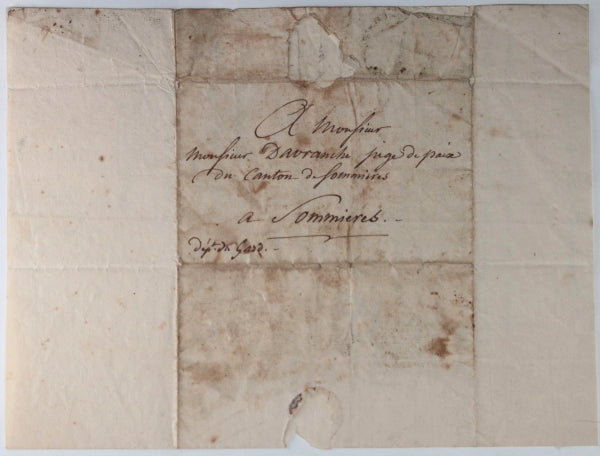 A Monsieur
Monsieur Davranche juge de paix
du Canton de Sommieres
a Sommieres. -
dépt. du Gard. -